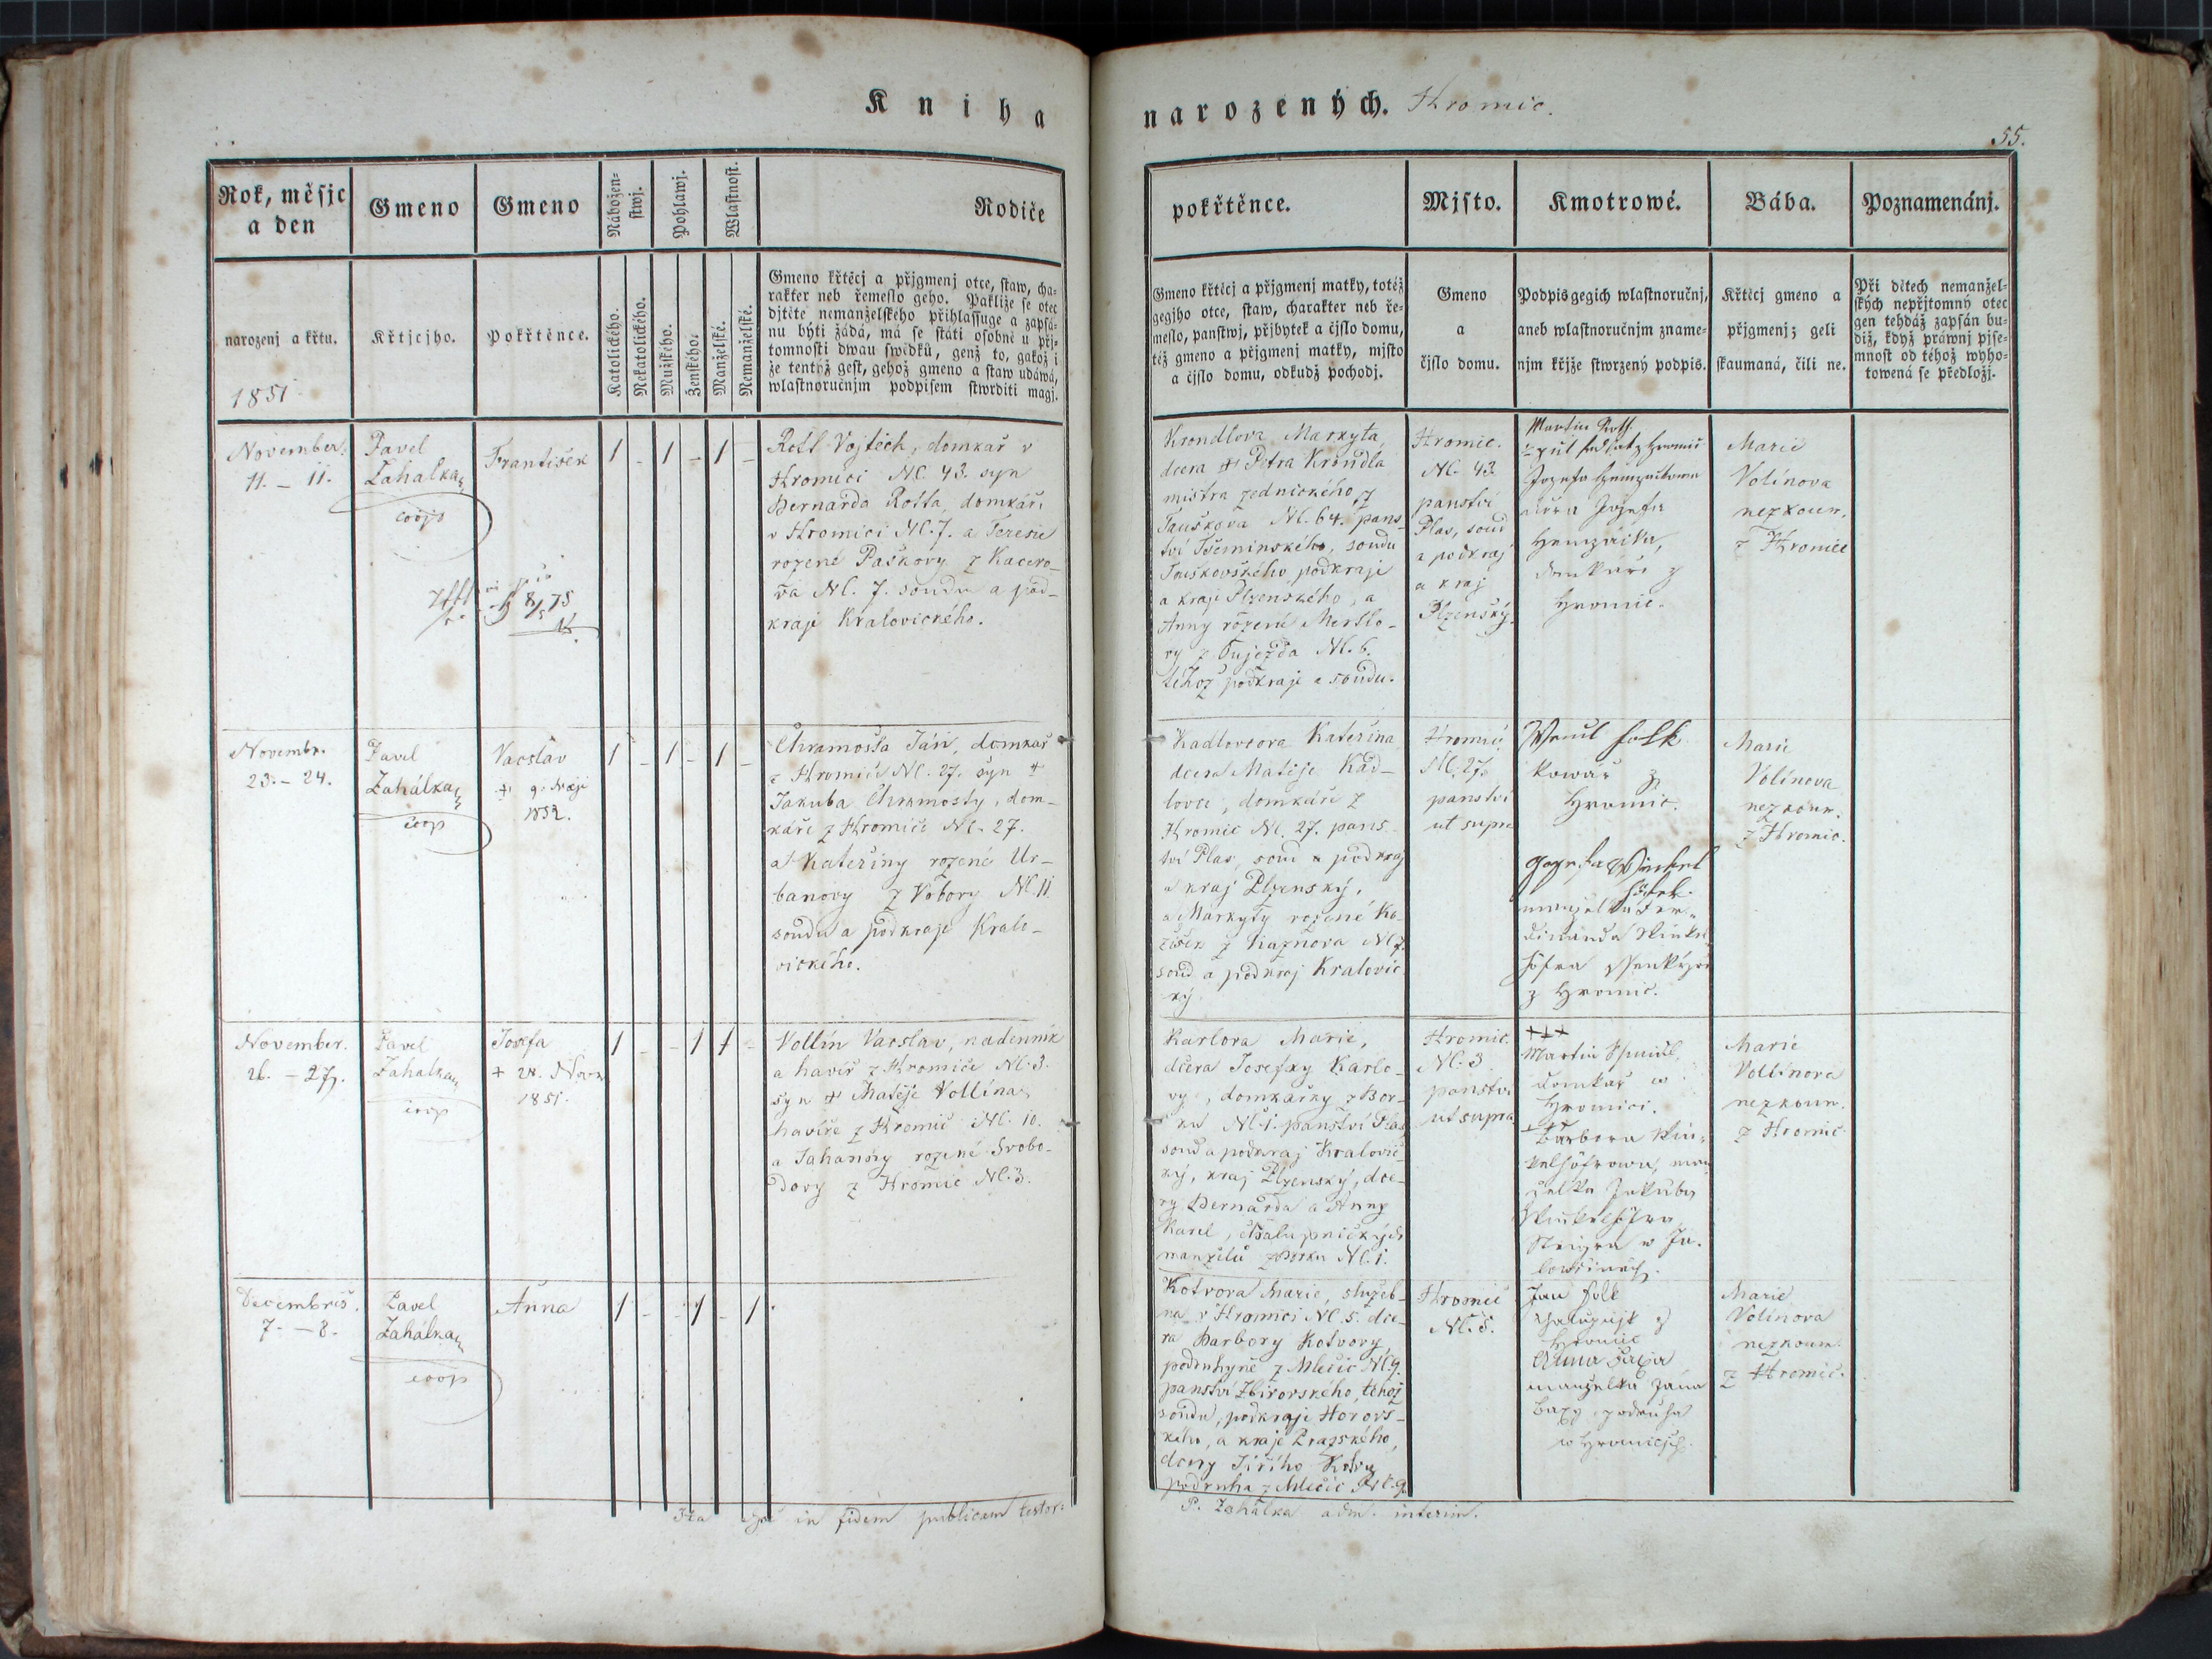 Kniha
narozených. Hromic.
55.
Rok, měsíc
a den
narozenj a křtu.
1851
Gmeno
Křtjcjho.
Gmeno
Pokřtěnce.
Nábožen=
stwj.
Katolického.
Nekatolického.
Pohlawj.
Mužského.
Ženského.
Wlastnost.
Manželské.
Nemanželské.
Rodiče
Gmeno křtěcj a přjgmenj otce, staw, cha=
rakter neb řemeslo geho. Pakliže se otec
djtěte nemanželského přihlassuge a zapsá=
nu býti žádá, má se státi osobně u přj=
tomnosti dwau swědků, genž to, gakož i
že tentýž gest, gehož gmeno a staw udáwá,
wlastnoručnjm podpisem stwrditi magj.
pokřtěnce.
Gmeno křtěcj a přjgmenj matky, totéž
gegjho otce, staw, charakter neb ře=
meslo, panstwj, přjbytek a čjslo domu,
též gmeno a přjgmenj matky, mjsto
a čjslo domu, odkudž pochodj.
Mjsto.
Gmeno
a
čjslo domu.
Kmotrowé.
Podpis gegich wlastnoručnj,
aneb wlastnoručnjm zname=
njm křjže stwrzený podpis.
Bába.
Křtěcj gmeno a
přjgmenj; geli
skaumaná, čili ne.
Poznamenánj.
Při dětech nemanžel=
ských nepřjtomný otec
gen tehdáž zapsán bu=
diž, když práwnj pjse=
mnost od téhož wyho=
towená se předložj.
November.
11. – 11.
Pavel
Zahálka
coop
František
1 - 1 - 1 -
Rotl Vojtěch, domkař v
Hromici Nč. 43. syn
Bernarda Rotta, domkáři
v Hromici Nč. 7. a Teresie
rozené Paškovy z Kacero-
va Nč. 7. soudu a pod-
kraje Kralovického.
Krondlova Markyta,
dcera + Petra Krondla
mistra zednického z
Tauškova Nč. 64. pans-
tví Tšeminského, soudu
Tauškovského podkraje
a kraje Plzenského, a
Anny rozené Mertlo-
vy z Tujezda Nč. 6.
tehož podkraje a soudu.
Hromic.
Nč. 43.
panství
Plas, soud
a podkraj
a kraj
Plzenský.
Martin Roth
Josefa
domkáři z
Hromic.
Marie
Volínova
nezkoum.
z Hromic
Novembr.
23. – 24.
Pavel
Zahálka
coop
Vacslav
+ 9.
1852.
1 - 1 - 1 -
Chramosta Ján, domkař
z Hromic Nč. 27. syn +
Jakuba Chramosty, dom-
káře z Hromic Nč. 27.
a Kateřiny rozené Ur-
banovy z Vobory Nč. 11
soudu a podkraje Kralo-
vického.
Kadlovcova Kateřina
dcera Matěje Kad-
lovce, domkáře z
Hromic Nč. 27. pans-
tví Plas, soud a podkraj
a kraj Plzenský,
a Markyty rozené Ko-
z Kaznova Nč 7.
soud a podkraj Kralovic-
ký.
Hromic,
Nč. 27.
panství
ut supra
kowář z
Hromic.
z Hromic.
Marie
Volínova
nezkoum.
z Hromic.
November.
26. – 27.
Pavel
Zahálka
coop
Josefa
+ 28. Novem
1851.
1 - - 1 1 -
Vollín Vacslav, nadenník
a havíř z Hromic Nč. 3.
syn + Matěje Vollína,
havíře z Hromic Nč. 10.
a Johanny rozené Svobo-
dovy z Hromic Nč. 3.
Karlova Marie,
dcera Josefky Karlo-
vy, domkařky z Bor-
ku Nč. 1. panství Plas
soud a podkraj Kralovic-
ký, kraj Plzenský, dce-
ry Bernarda a Anny
Karel, chalupnických
manželů z Borku Nč. 1.
Hromic.
Nč. 3
panství
ut supra
+++
Martin
domkař w
Hromici.
Barbora Win-
kelhöfrowa, man
želka Jakuba
Winkelhöfra
Marie
Vollínova
nezkoum.
z Hromic
Decembris.
7. – 8.
Pavel
Zahálka
coop
Anna
1 - - 1 - 1
Kotvova Marie, služeb-
na v Hromici Nč. 5. dce-
ra Barbory Kotvovy,
podruhyně z Mlečic Nč 9.
panství Zbirovského, téhož
soudu, podkraje Horovs-
kého, a kraje Pražského,
dcery Jiřího Kotvy
podruha z Mlečic Nč. 9.
Hromic
Nč. 5.
Jan Folk
chalupnjk z
Hromic
Anna
manželka Jána
podruha
w Hromicjch.
Marie
Volínova
nezkoum.
z Hromic.
Ita in fidem publicam testor:
P. Zahálka adm. interim.